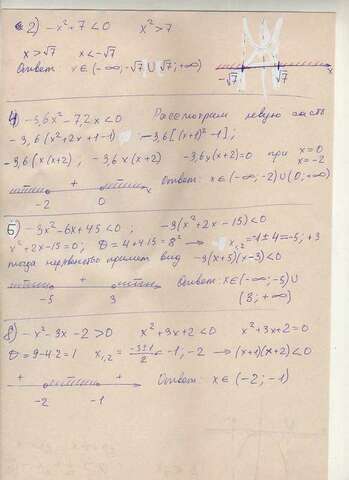 2) -x²+7<0   x²>7
x>√7   x<-√7
Ответ: x∈(-∞;-√7∪√7;+∞)
-√7   √7   x
4) -3,6x²-7,2x<0   Рассмотрим левую часть
-3,6(x²+2x+1-1)   -3,6[(x+1)²-1];
-3,6(x(x+2);   -3,6x(x+2)   -3,6x(x+2)=0 при x=0
x=-2
- + - x   Ответ: x∈(-∞,-2)∪(0;+∞)
-2   0
6) -3x²-6x+45<0;   -3(x²+2x-15)<0
x²+2x-15=0;   D=4+4·15=8² → x₁,₂=-1±4=-5;+3
тогда неравенство примет вид -3(x+5)(x-3)<0
- + -   Ответ: x∈(-∞;-5)∪
-5   3   (3;+∞)
8) -x²-3x-2>0   x²+3x+2<0   x²+3x+2=0
D=9-4·2=1   x₁,₂=(-3±1)/2=-1,-2 → (x+1)(x+2)<0
+ - +   Ответ: x∈(-2;-1)
-2   -1